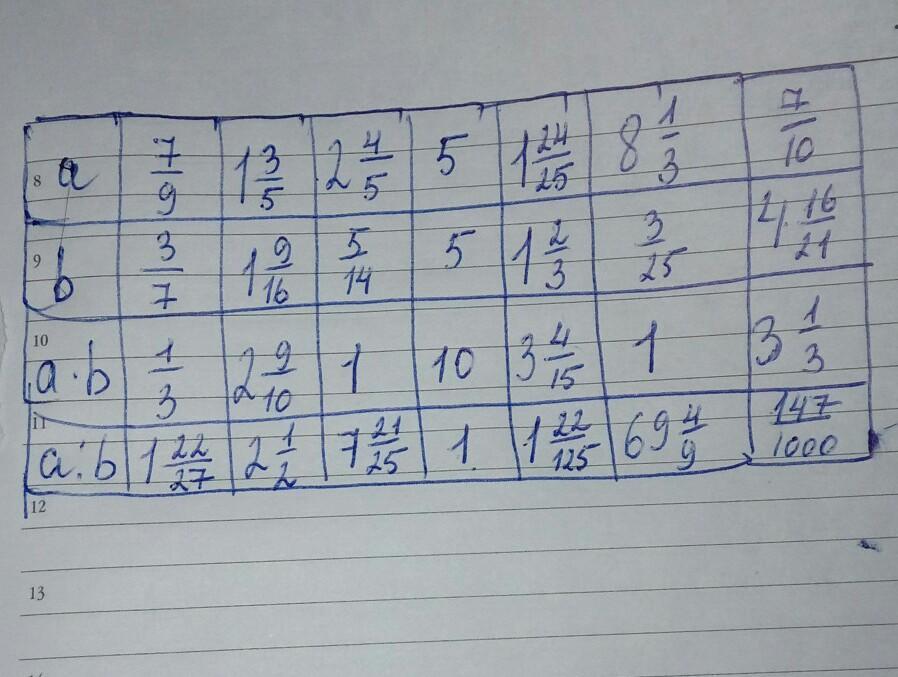 8 a 7/9 1 3/5 2 4/5 5 1 24/25 8 1/3 7/10
9 b 3/7 1 9/16 5/14 5 1 2/3 3/25 4 16/21
10 a · b 1/3 2 9/10 1 10 3 4/15 1 3 1/3
11 a : b 1 22/27 2 1/2 7 21/25 1 1 22/125 69 4/9 147/1000
12
13